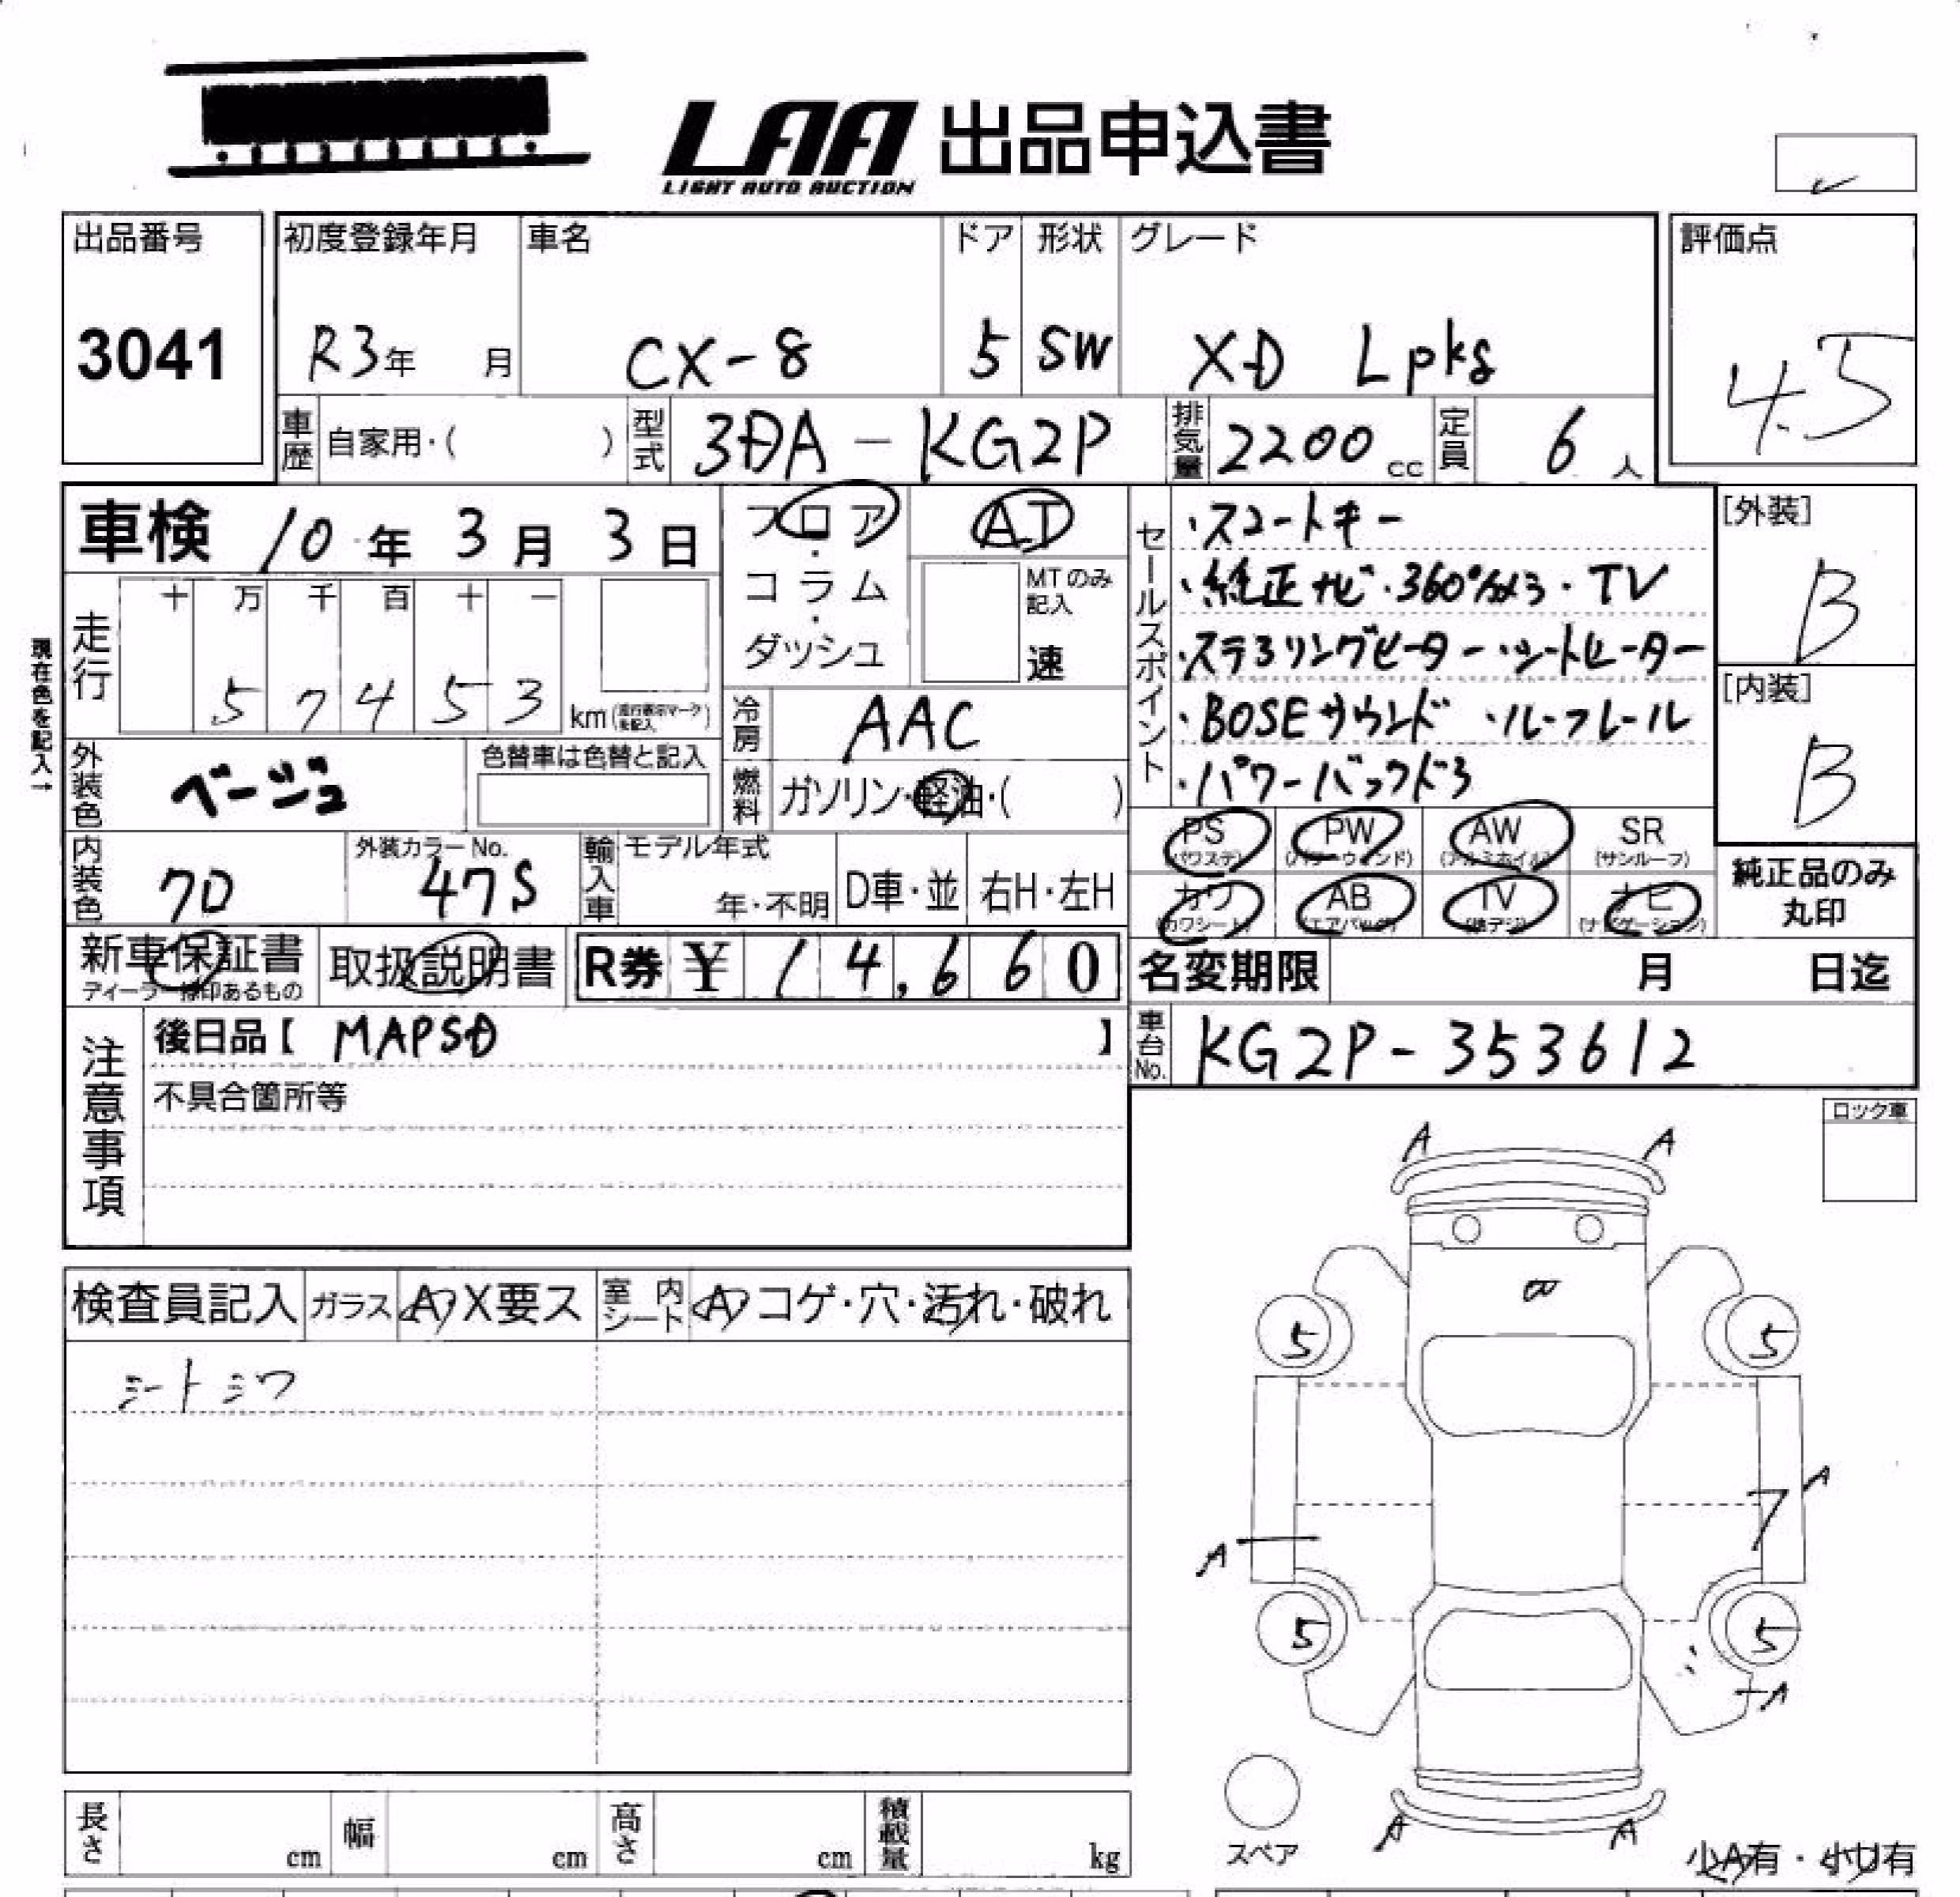 LAA 出品申込書
LIGHT AUTO AUCTION
出品番号 初度登録年月 車名 ドア 形状 グレード 評価点
3041 R3年 月 CX-8 5 SW XD Lpkg 4.5
車歴 自家用・( ) 型式 3DA-KG2P 排気量 2200cc 定員 6人
車検 10年 3月 3日 フロア・コラム・ダッシュ AT
MTのみ記入 速
セールスポイント
・スマートキー
・純正ナビ・360°カメラ・TV
・ステアリングヒーター・シートヒーター
・BOSEサウンド ・ルーフレール
・パワーバックドア
[外装] B
[内装] B
現在色を記入→
走行 十 万 千 百 十 一
5 7 4 5 3 km(走行表示マークを記入)
冷房 AAC
外装色 ベージュ 色替車は色替と記入
燃料 ガソリン・軽油・( )
PS (パワステ) PW (パワーウィンド) AW (アルミホイル) SR (サンルーフ)
カワ (カワシート) AB (エアバッグ) TV (地デジ) ナビ (ナビゲーション)
純正品のみ丸印
内装色 7D 外装カラーNo. 47S 輸入車 モデル年式 年・不明 D車・並 右H・左H
新車保証書 取扱説明書 R券 ¥ 14,660 名変期限 月 日迄
ディーラー捺印あるもの
注意事項 後日品【 MAPSD 】 車台No. KG2P-353612
不具合箇所等
ロック車
検査員記入 ガラス A X要ス 室内シート A コゲ・穴・汚れ・破れ
シートシワ
A A
5 5
A
A
5 5
A
A A
スペア
小A有・小U有
長さ cm 幅 cm 高さ cm 積載量 kg